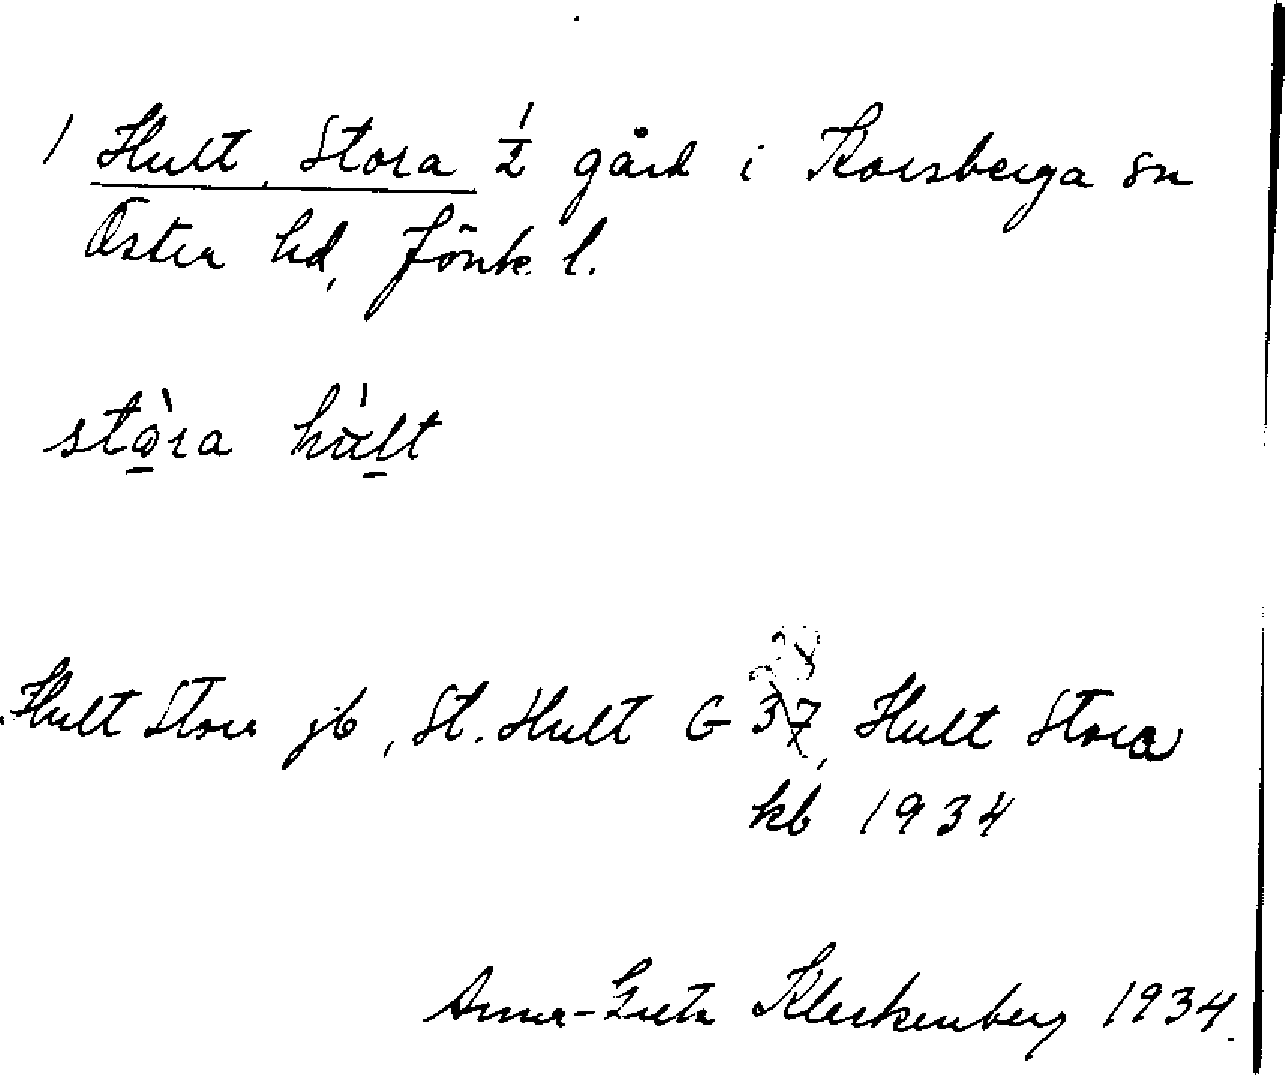 1 Hult, Stora 1/2 gård i Korsberga sn
Östra hd, Jönk. l.
stò̱ra hu̱lt
Hult Stora jb, St. Hult G 37, Hult Stora
kb 1934
Anna-Greta Kleckenberg 1934.